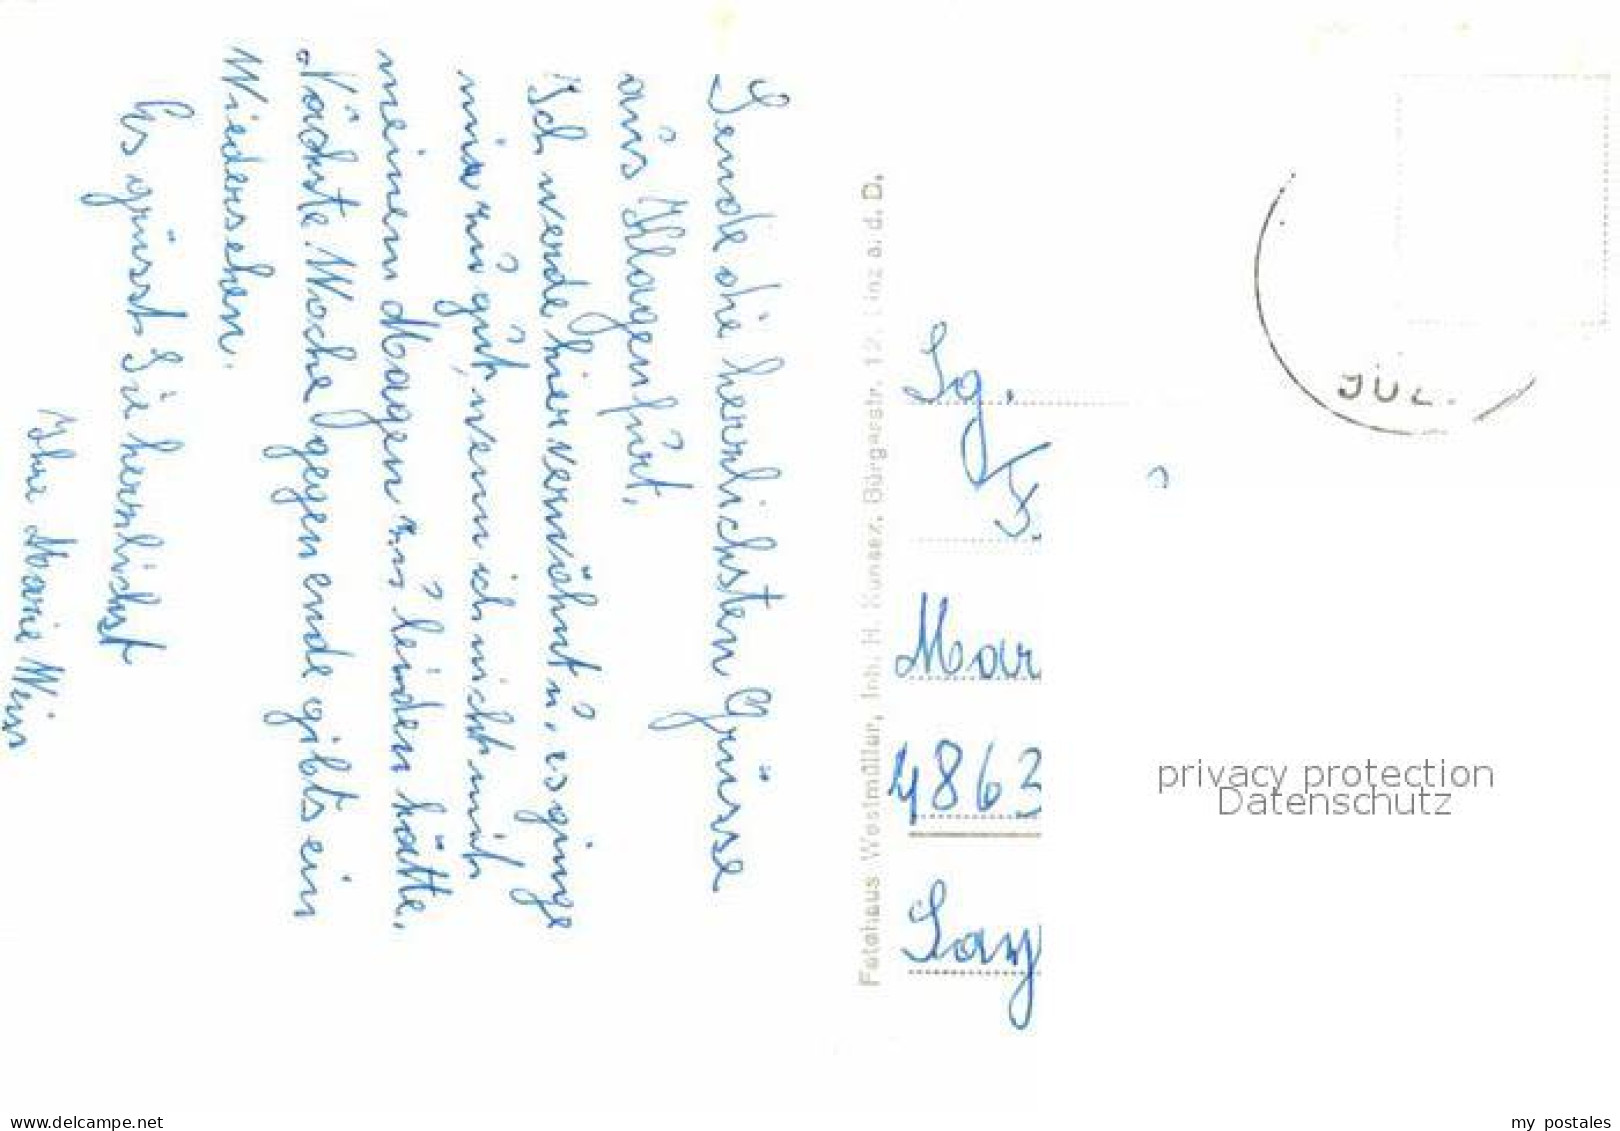 Sende die herrlichsten Grüsse
aus Klagenfurt.
Ich werde hier verwöhnt u. es ginge
mir zu gut, wenn ich nicht mit
meinem Magen zu leiden hätte.
Nächste Woche gegen ende gibts ein
Wiedersehen.
Es grüsst Sie herrlichst
Ihre Marie Weiss
Fotohaus Westmüller, Inh. H. Kunsex, Bürgerstr. 12, Linz a. d. D.
JUL.
Sg.
Mar
4863
privacy protection
Datenschutz
www.delcampe.net
my_postales